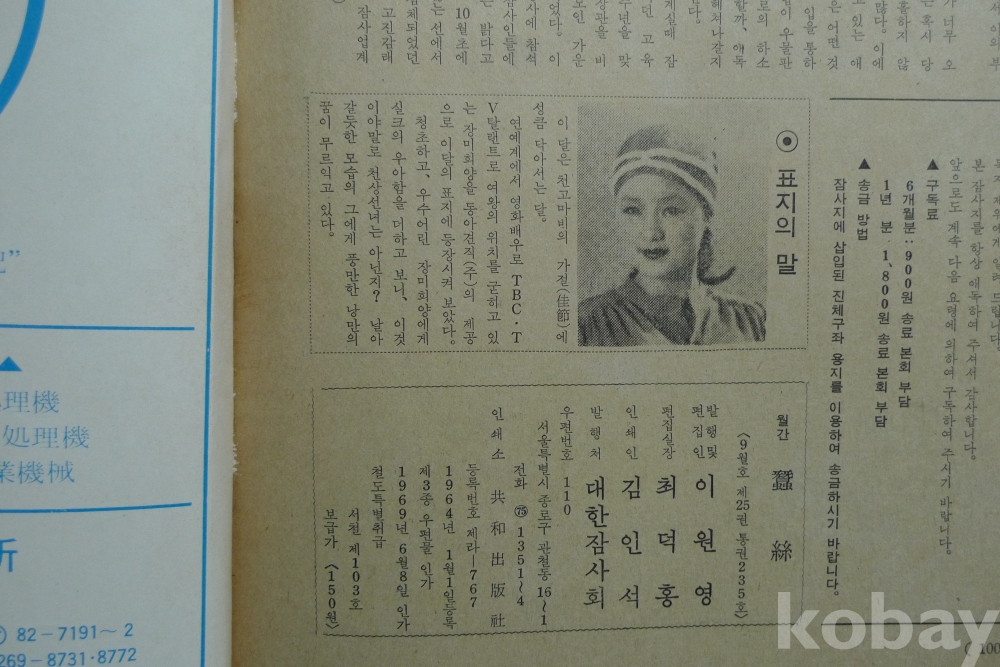 너무 오
혹시 당
흘하지 않
많다. 이에
고 있는 애
은 어떤 것
입을 통하
이 우물판
로의 하소
할까、애독
헤쳐나갈지
다.
계실때 잠
던 고 육
주년을 맞
상관을 비
모인 가운
었다. 이
사에 참석
잠사인들에
는 밝다고
10월초에
는 선에서
체되었던
고진감래
잠사업계
본 잠사지를 항상 애독하여 주셔서 감사합니다.
앞으로도 계속 다음 요령에 의하여 구독하여 주시기 바랍니다.
▲구독료
6개월분:900원 송료 본회 부담
1년 분·1,800원 송료 본회 부담
▲송금 방법
잠사지에 삽입된 진체구좌 용지를 이용하여 송금하시기 바랍니다.
◉ 표지의 말
이 달은 천고마비의 가절(佳節)에
성큼 닥아서는 달。
연예계에서 영화배우로 TBC·T
V탈랜트로 여왕의 위치를 굳히고 있
는 장미희양을 동아견직(주)의 제공
으로 이달의 표지에 등장시켜 보았다。
청초하고、우수어린 장미희양에게
실크의 우아함을 더하고 보니、이것
이야말로 천상선녀는 아닌지? 날아
갈듯한 모습의 그에게 풍만한 낭만의
꿈이 무르익고 있다。
월간 蠶 絲
〈9월호 제25권 통권235호〉
발행및 편집인 이 원 영
편집실장 최 덕 홍
인쇄인 김 인 석
발행처 대한잠사회
우편번호 110
서울특별시 종로구 관철동 16~1
전화 ㉕ 1351~4
인쇄소 共和出版社
등록번호 제라-767
1964년 1월1일등록
제3종 우편물 인가
1969년 6월8일 인가
철도특별취급
서철 제103호
보급가 〈150원〉
”
▲
理機
処理機
業機械
所
82-7191~2
269-8731·8772
kobay